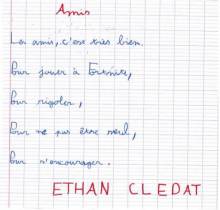 Amis
Les amis, c'est très bien.
Pour jouer à Fortnite,
Pour rigoler,
Pour ne pas être seul,
Pour s'encourager.
ETHAN CLEDAT